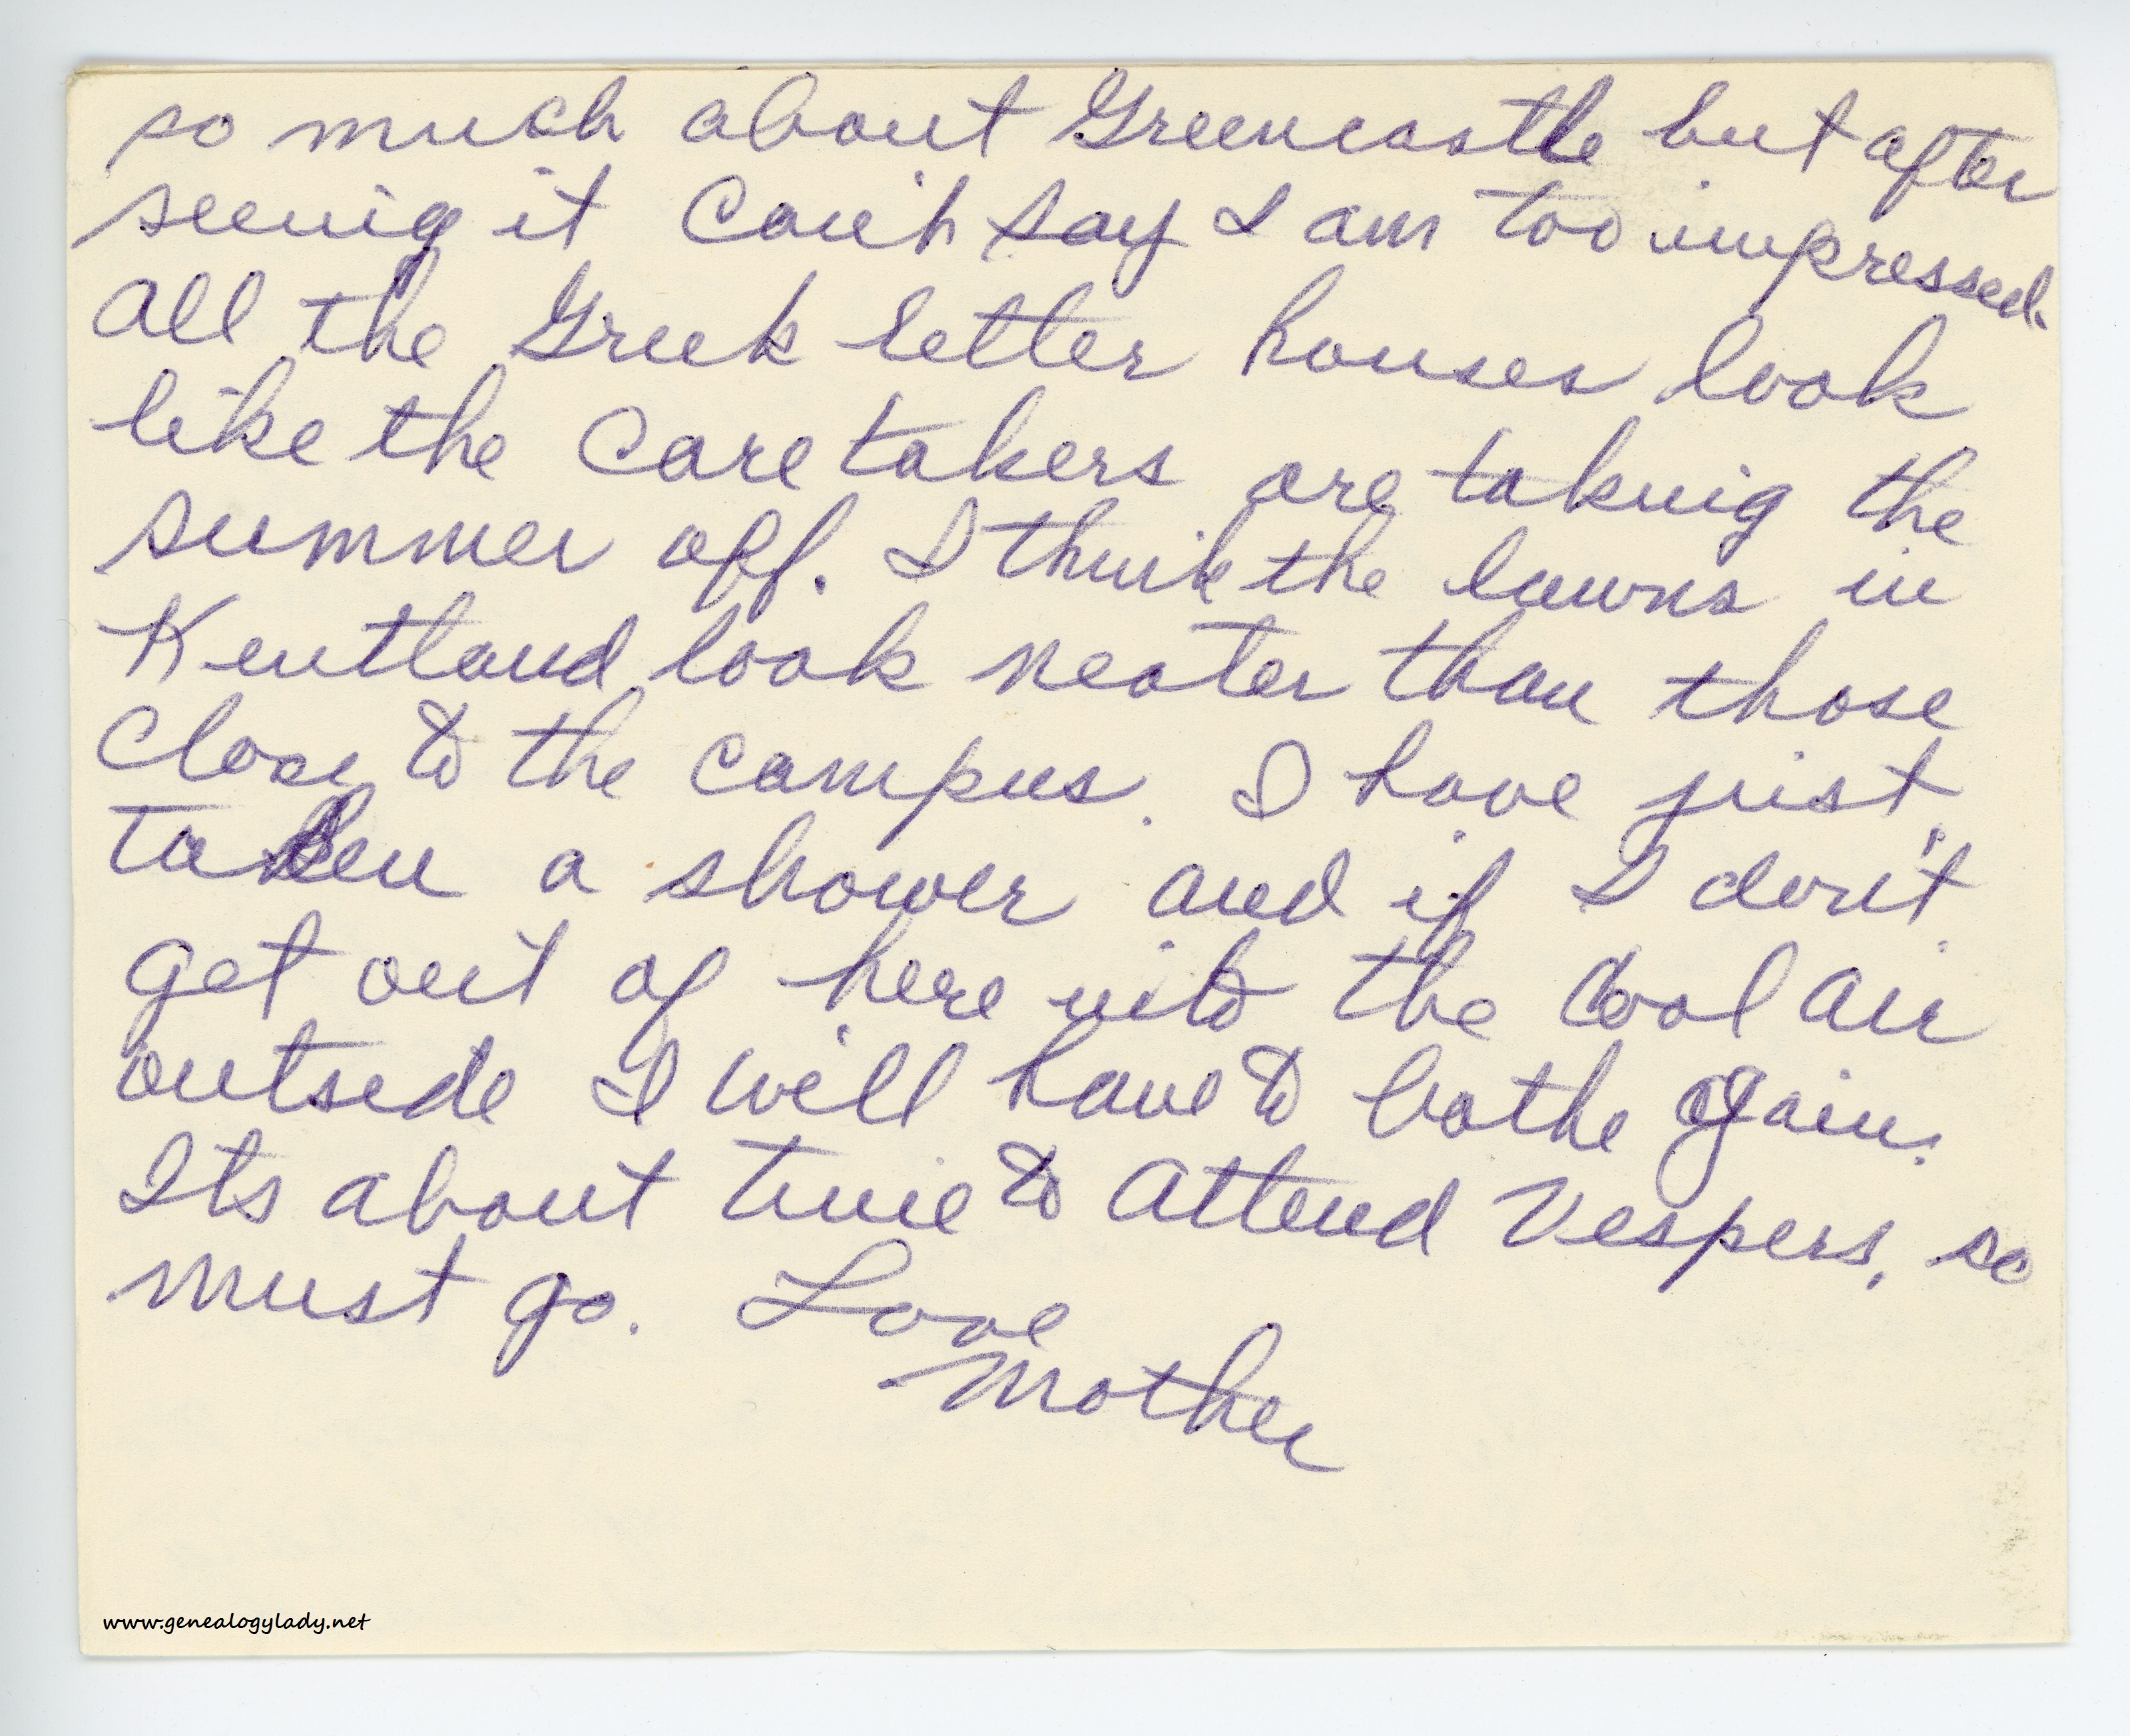 so much about Greencastle but after
seeing it Can't say I am too impressed.
All the Greek letter houses look
like the Care takers are taking the
summer off. I think the lawns in
Kentland look neater than those
Close to the campus. I have just
taken a shower and if I don't
get out of here into the Cool air
outside I will have to bathe again.
Its about time to attend Vespers, so
must go. Love
Mother
www.genealogylady.net